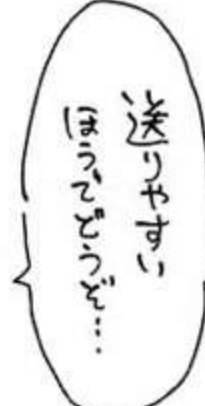 送りやすい
ほうでどうぞ…